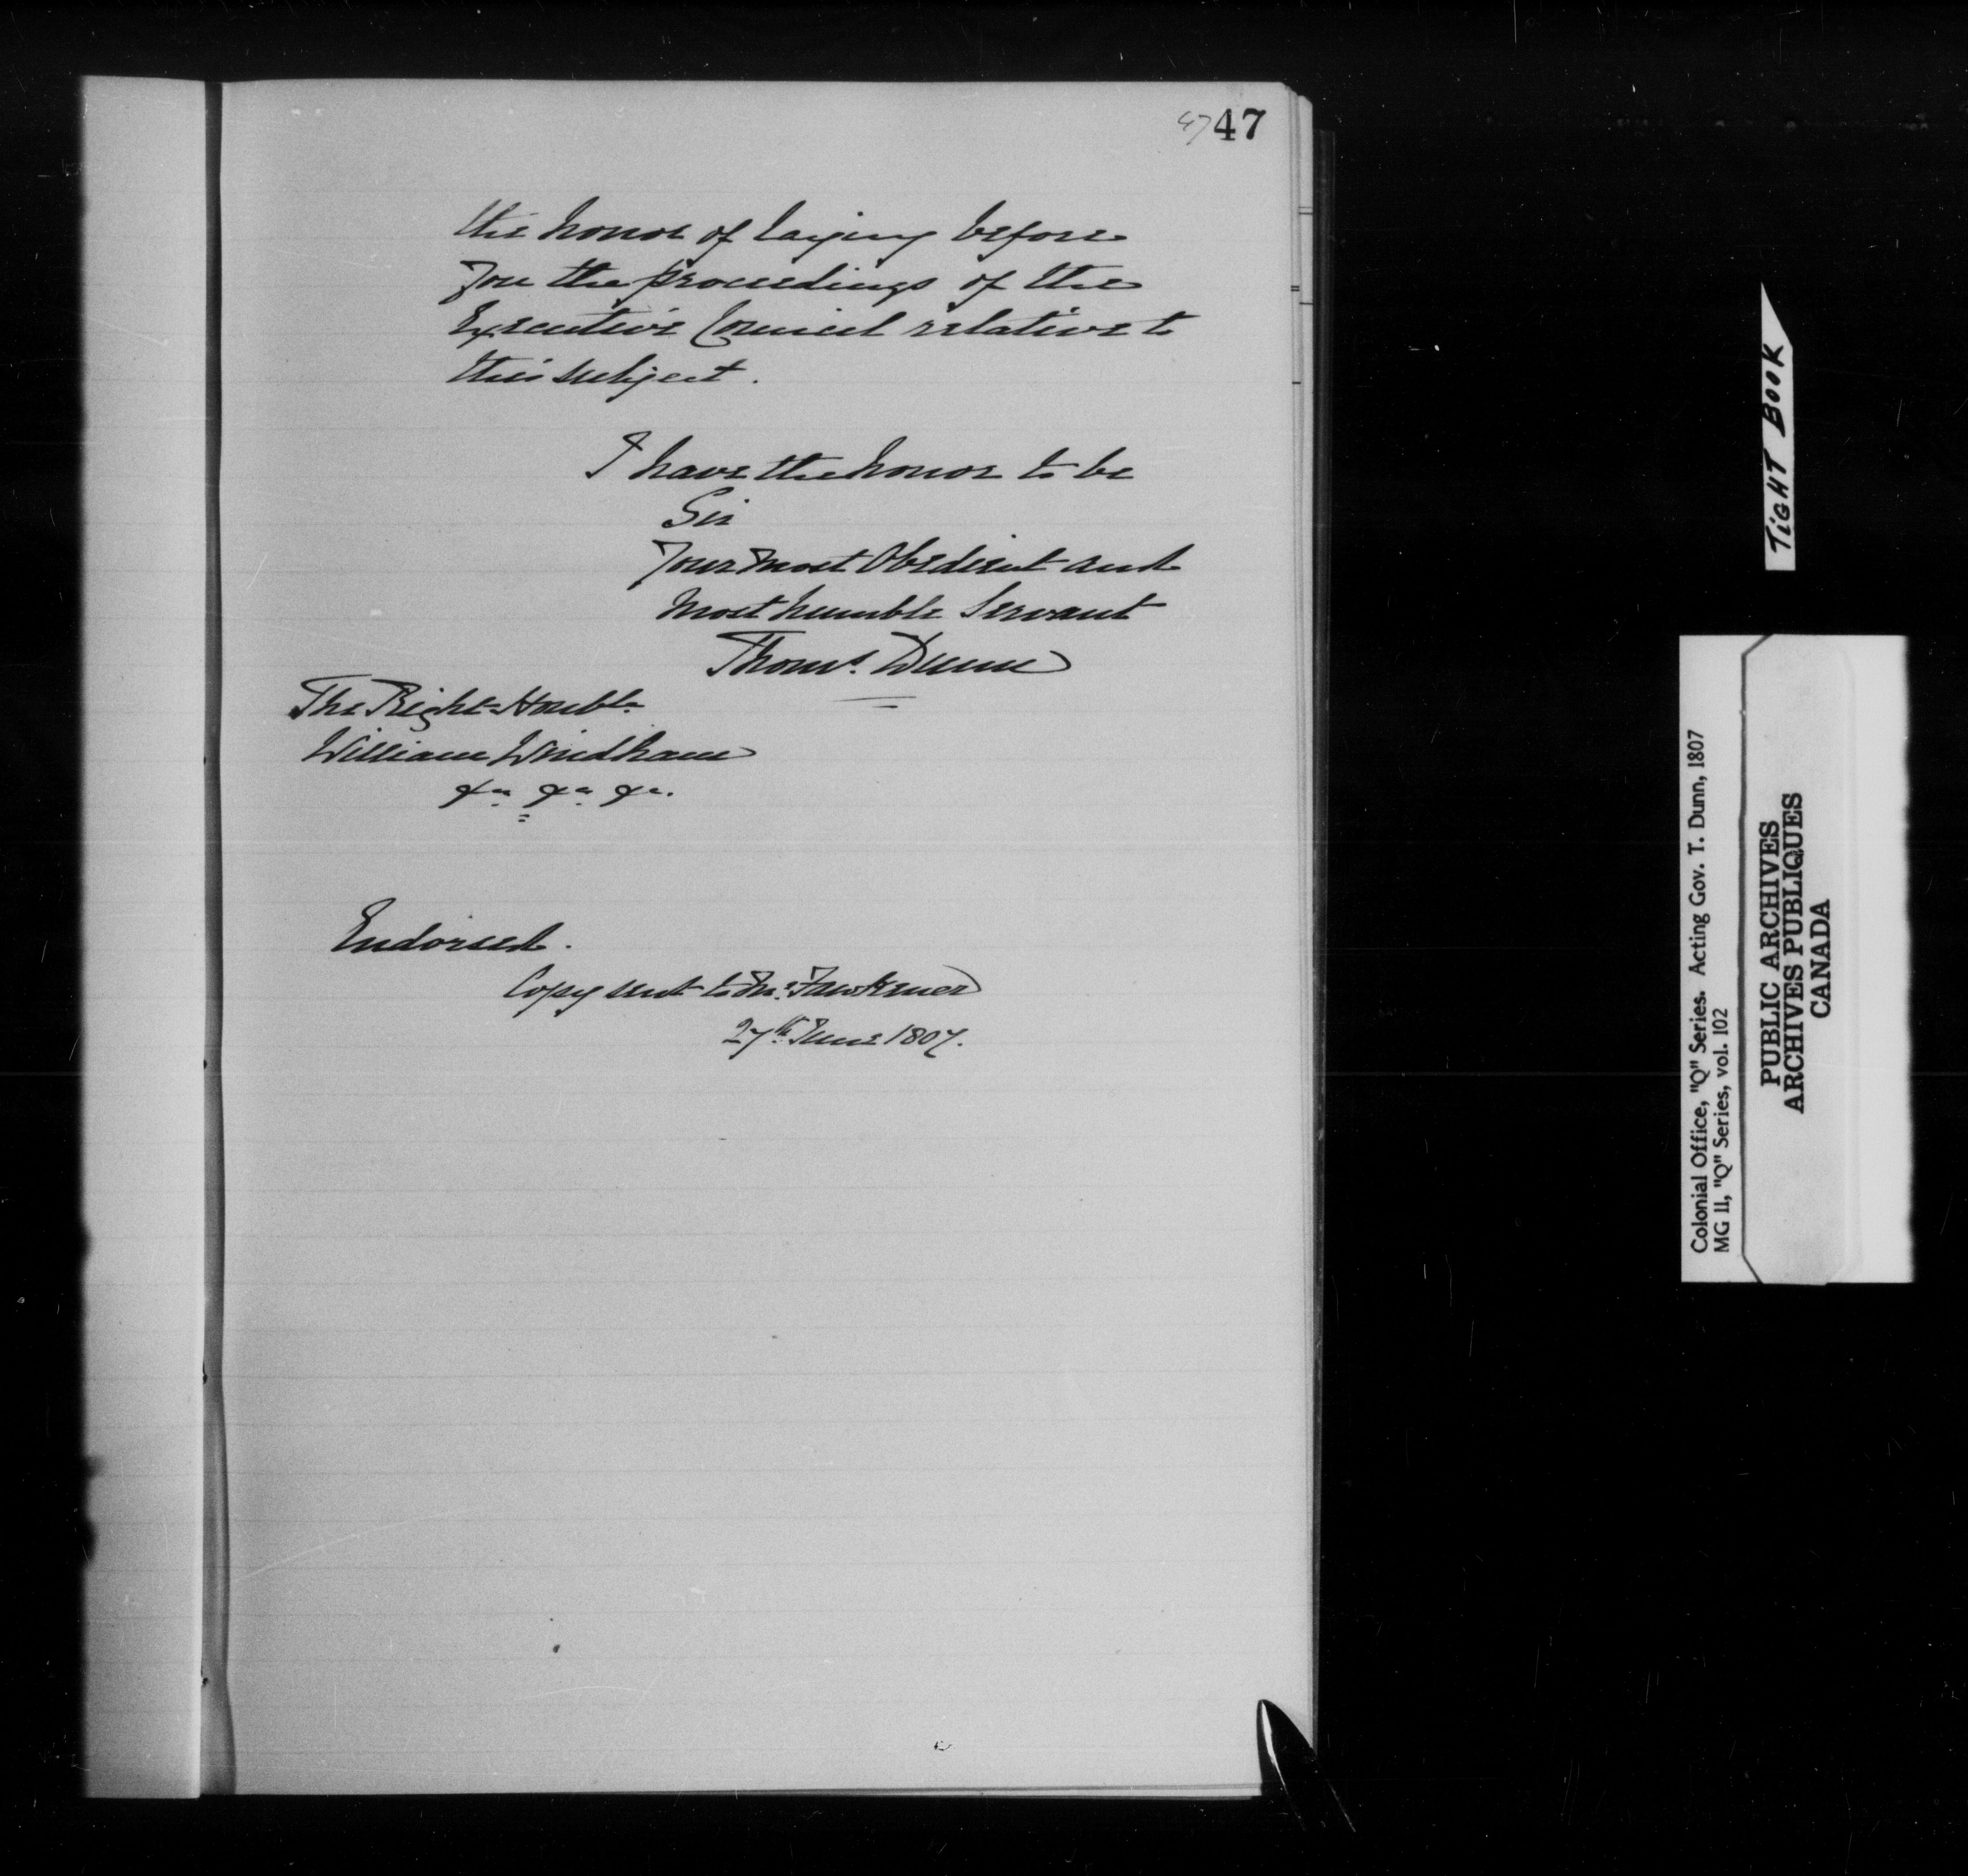 47 47
the honor of laying before
you the proceedings of the
Executive Council relative to
this subject.
I have the honor to be
Sir
Your most Obedient and
most humble Servant
Thoms. Dunn
The Right Honble
William Windham
&c. &c. &c.
Endorsed.
Copy sent to Mr. Fawkener
27th June 1807.
TIGHT BOOK
Colonial Office, "Q" Series. Acting Gov. T. Dunn, 1807
MG 11, "Q" Series, vol. 102
PUBLIC ARCHIVES
ARCHIVES PUBLIQUES
CANADA